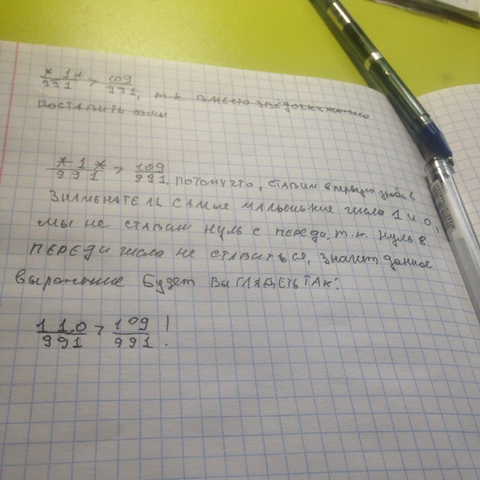 *1*/991 > 109/991, т.к. вместо звёздочек можно
поставить
*1*/991 > 109/991, потому что, ставим в первую дробь в
знаменатель самые маленькие числа 1 и 0,
мы не ставим нуль с переди, т.к. нуль в
переди числа не ставиться, значит данное
выражение будет выглядеть так:
110/991 > 109/991!